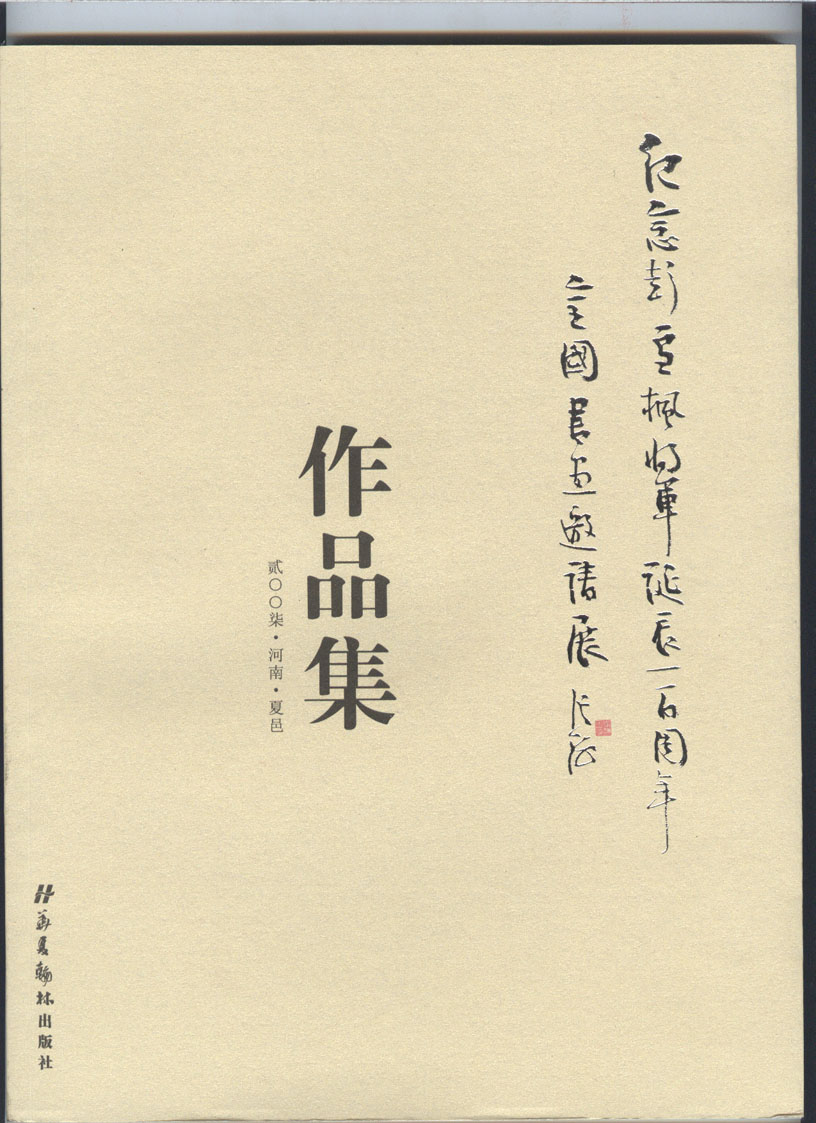 纪念彭雪枫将军诞辰一百周年
全國书画邀请展
作品集
贰〇〇柒·河南·夏邑
华夏翰林出版社